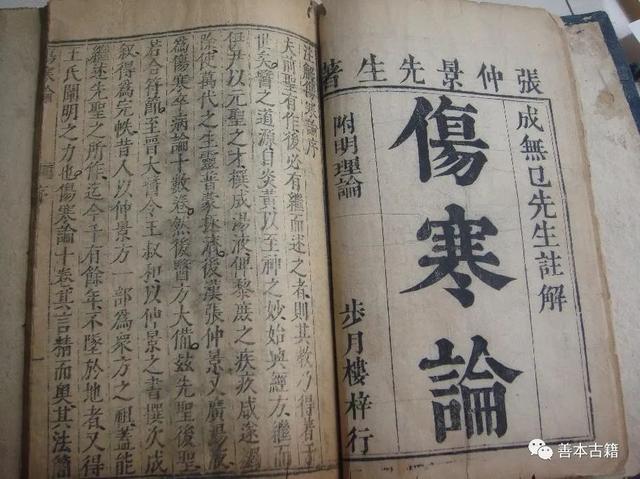 張仲景先生著
成無已先生註解
傷寒論
附明理論
步月樓梓行
注解傷寒論序
夫前聖有作後必有繼而述之者則其教乃得著于
世矣醫之道源自炎黃以至神之妙始興經方繼而
伊尹以元聖之才撰成湯液俾黎庶之疾疢咸遂蠲
除使萬代之生靈普蒙拯濟後漢張仲景又廣湯液
為傷寒卒病論十數卷然後醫方大備茲先聖後聖
若合符節至晉太醫令王叔和以仲景之書撰次成
敘得為完帙昔人以仲景方一部為眾方之祖蓋能
繼述先聖之所作迄今千有餘年不墜於地者又得
王氏闡明之力也傷寒論十卷其言精而奧其法簡
傷寒論 序 一
善本古籍